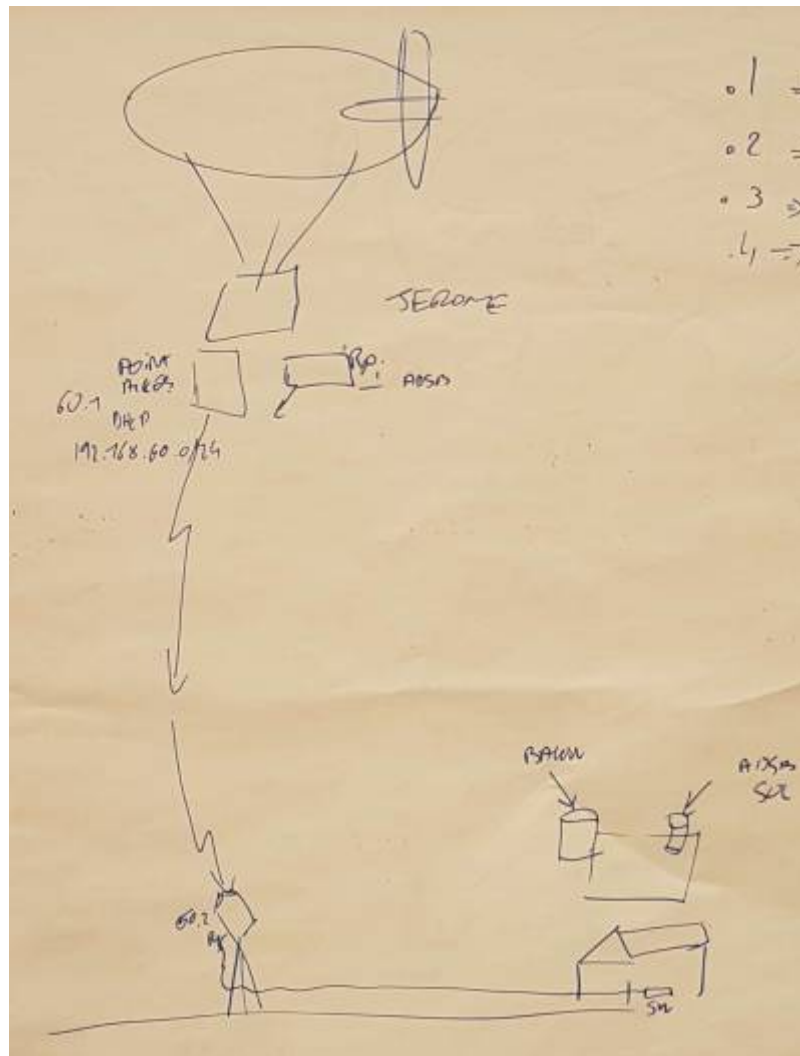 .1 =
.2 =
.3 =>
.4 =>
JEROME
POINT
60.1
DHCP
192.168.60.0/24
Rpi
ADSB
BALLON
60.2
SW